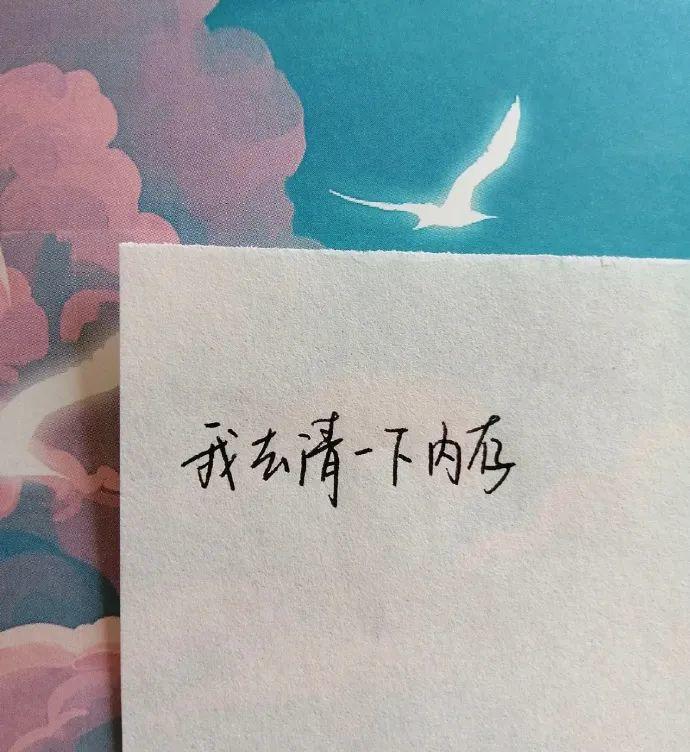 我去清一下内存